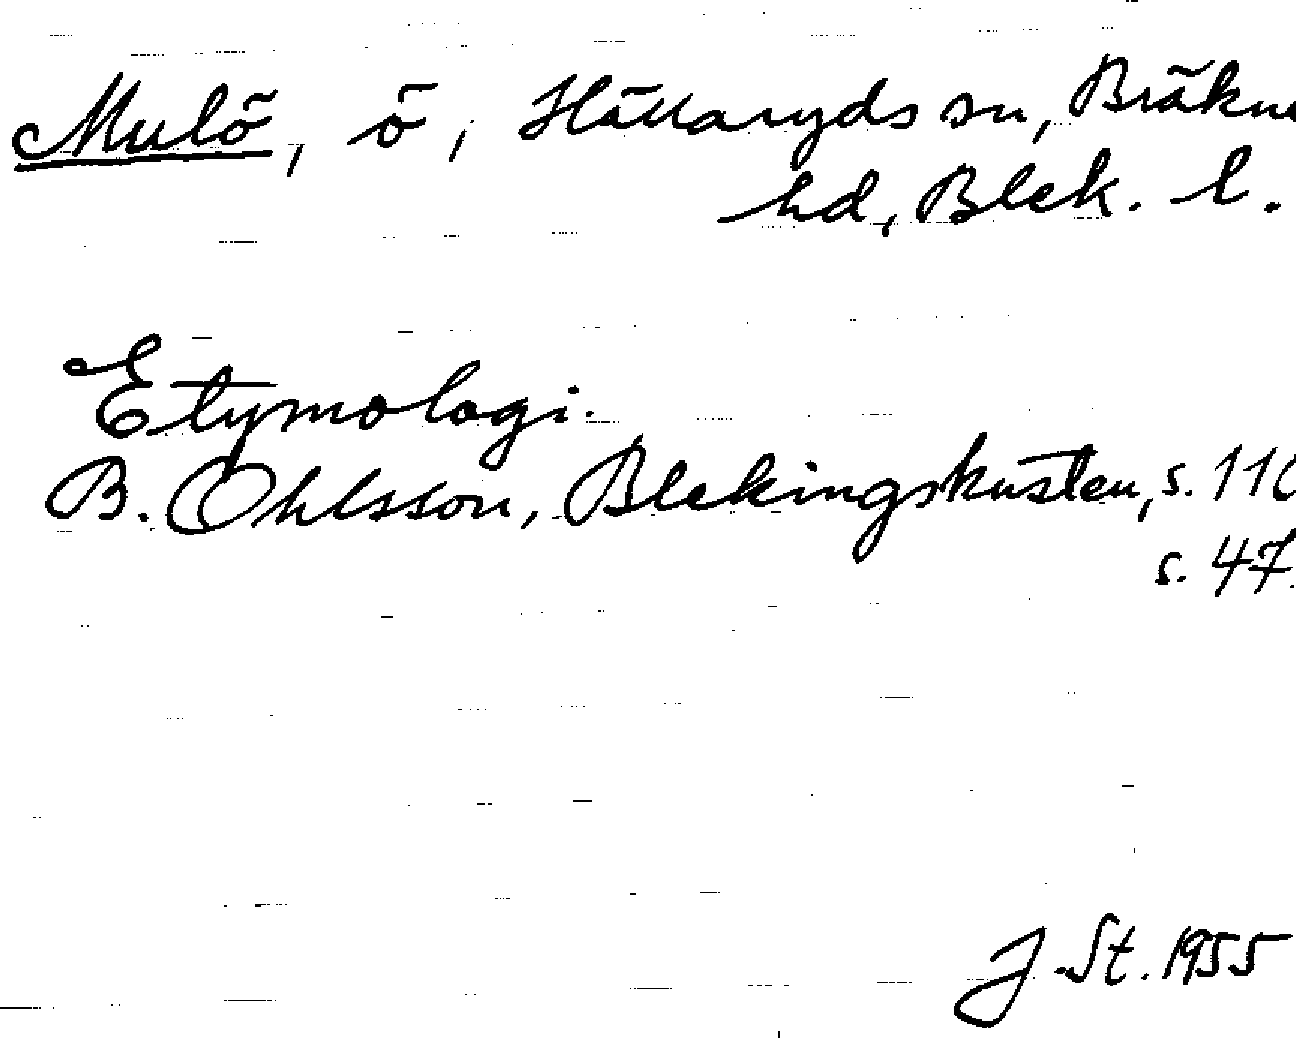 Mulö, ö, Hällaryds sn, Bräkne
hd, Blek. l.
Etymologi.
B. Ohlsson, Blekingskusten, s. 110
s. 47.
J. St. 1955